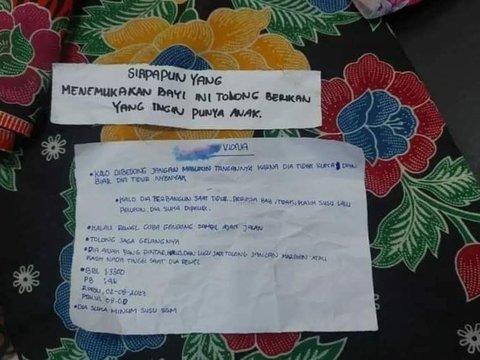 SIAPAPUN YANG
MENEMUKAKAN BAYI INI TOLONG BERIKAN
YANG INGIN PUNYA ANAK.
• KALO DIBEDONG JANGAN MASUKIN TANGANNYA KARNA DIA TIDAK SUKA, DAN
BIAR DIA TIDUR NYENYAK
• KALO DIA TERBANGUN SAAT TIDUR, PERIKSA BAB/TIDAK, KASIH SUSU LALU
PELUKIN. DIA SUKA DIPELUK.
• KALAU REWEL COBA GENDONG SAMBIL AJAK JALAN
• TOLONG JAGA GELANGNYA
• DIA ANAK YANG PINTAR, DAN LUCU JADI TOLONG JANGAN MARAHIN ATAU
KASIH NADA TINGGI SAAT DIA REWEL
• BBL : 3300
PB :
RABU, 02-08-2023
• DIA SUKA MINUM SUSU SGM